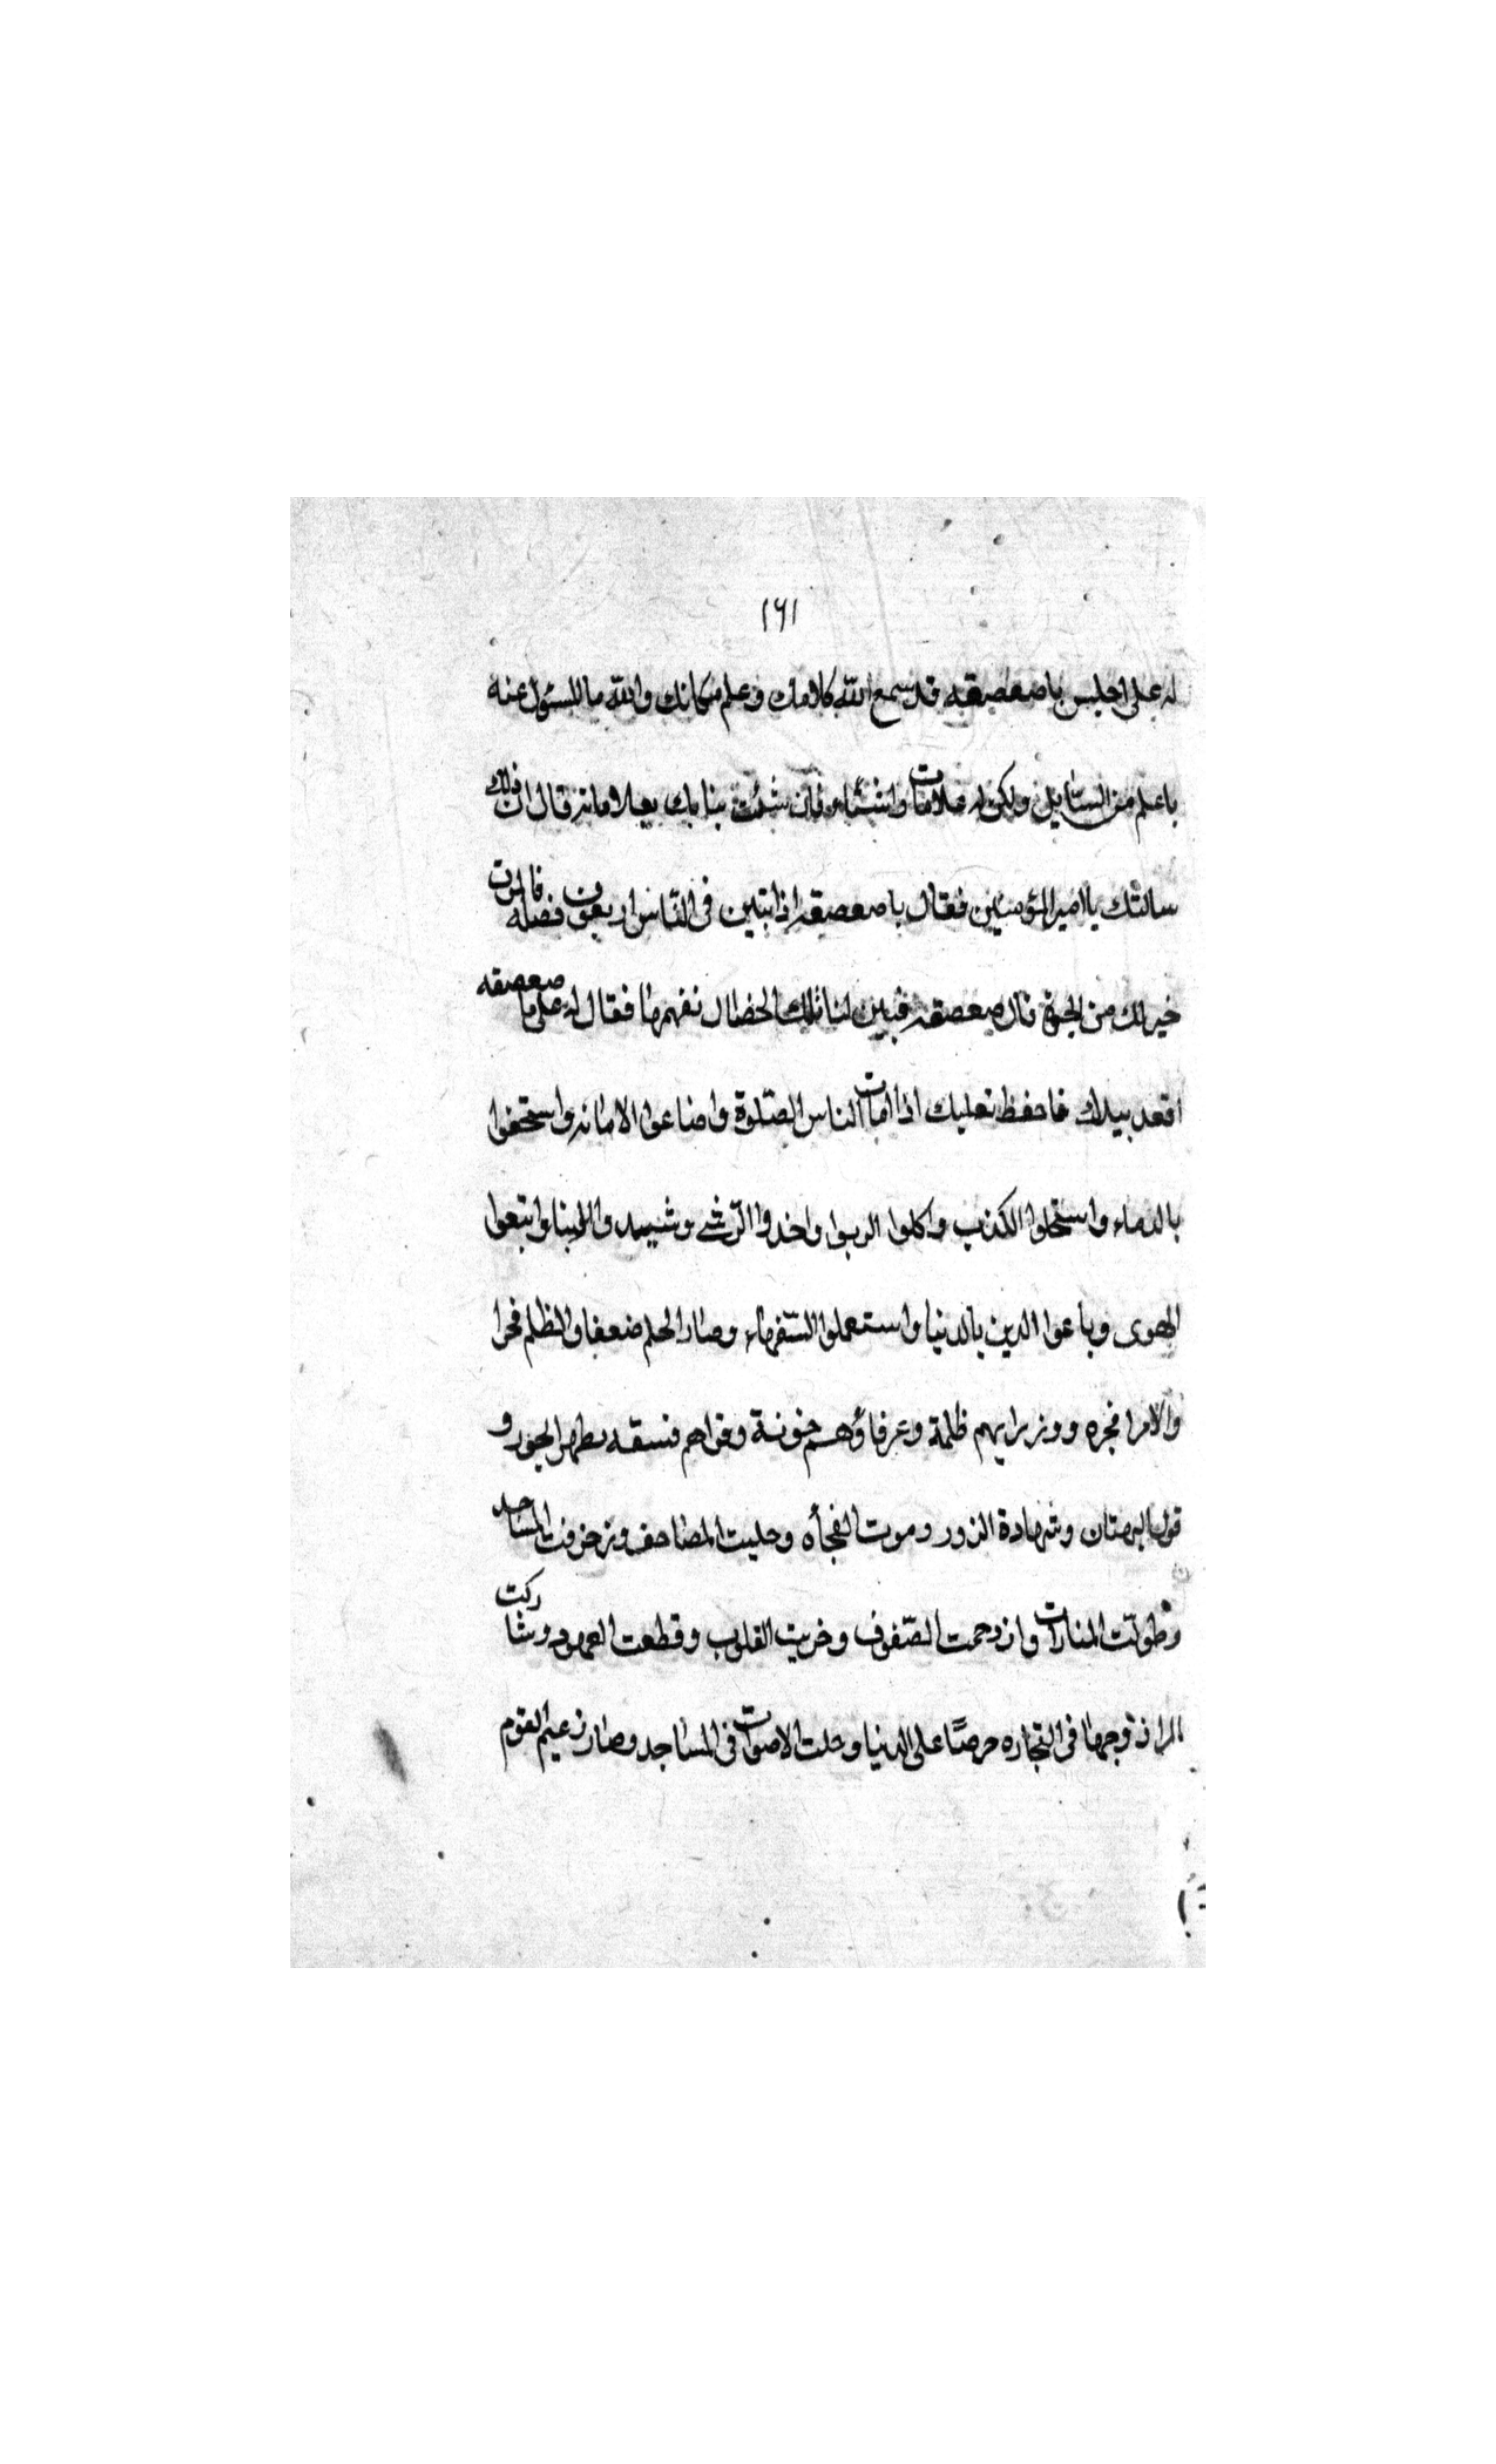 ١٦١
له على اجلس يا صعصعقه قد سمع الله كلامك وعلم مكانك والله ما المسئول عنه
باعلم من السايل ولكن له علامات واشياء فان شئت بنابك بعلاماته قال ان ذلك
سالتك يا امير المؤمنين فقال يا صعصعقه اذا ابتين فى الناس اربعون فضله فالموت
خير لك من الجوة قال صعصعقه فبين لنا تلك الخصال نفهمها فقال له على يا صعصعقه
اقعد بيدك فاحفظ تعليك اذا امات الناس الصّلوة واضاعوا الامانه واستخفوا
بالدماء واستحلوا الكذب واكلوا الربوا واخذوا الرّشى وشيدوا البنا واتبعوا
الهوى وباعوا الدين بالدنيا واستعملوا السّفهاء وصار الحلم ضعفا والظلم فخرا
والامرا فجره ووزيرايهم ظلمة وعرفاؤهم خونة وقراهم فسقه يظهر الجور و
قول البهتان وشهادة الزور وموت الفجأه وحليت المصاحف وزخرفت المساجد
وطولّت المنارات وازدحمت الصّفوف وخربت القلوب وقطعت العهود وشاركت
المراة زوجها فى التجاره حرصًا على الدنيا وعلت الاصوات فى المساجد وصار زعيم القوم